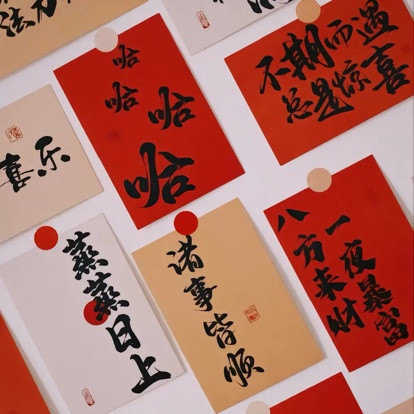 法力
哈
哈哈
哈
不期而遇
总是惊喜
喜乐
蒸蒸日上
诸事皆顺
一夜暴富
八方来财